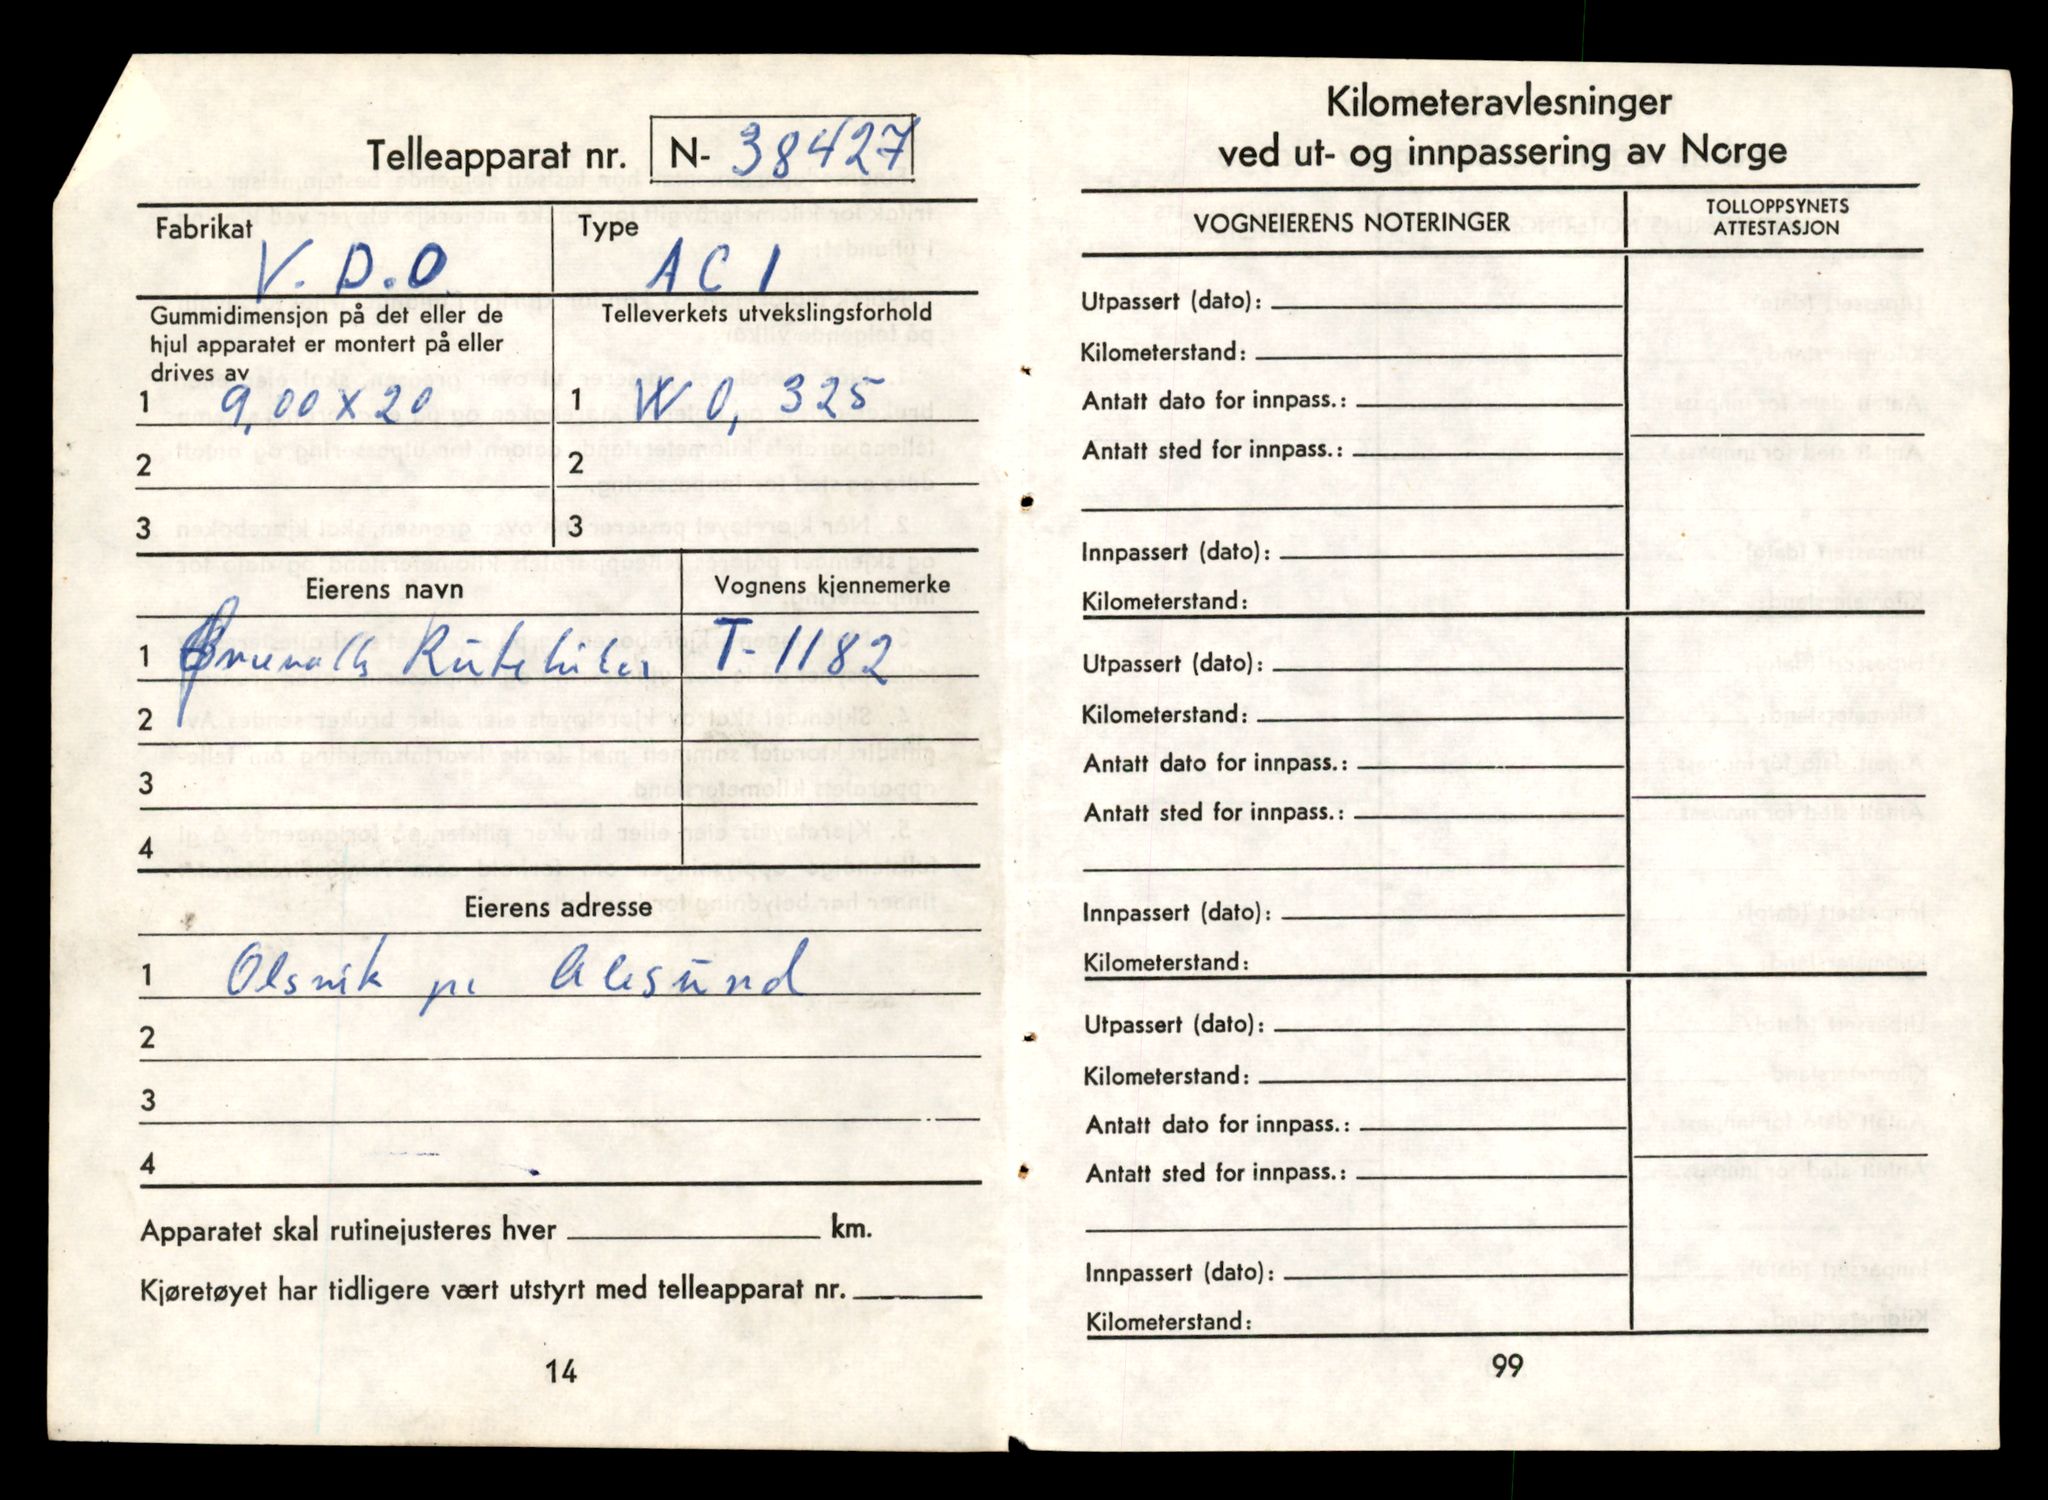 Telleapparat nr. N- 38427
Fabrikat
V.D.O
Type
AC 1
Gummidimensjon på det eller de
hjul apparatet er montert på eller
drives av
1 9,00 x 20
2
3
Telleverkets utvekslingsforhold
1 W 0,325
2
3
Eierens navn
Vognens kjennemerke
1 Rutebiler T-1182
2
3
4
Eierens adresse
1 Olsvik pr Ålesund
2
3
4
Apparatet skal rutinejusteres hver km.
Kjøretøyet har tidligere vært utstyrt med telleapparat nr.
14
Kilometeravlesninger
ved ut- og innpassering av Norge
VOGNEIERENS NOTERINGER
TOLLOPPSYNETS
ATTESTASJON
Utpassert (dato):
Kilometerstand:
Antatt dato for innpass.:
Antatt sted for innpass.:
Innpassert (dato):
Kilometerstand:
Utpassert (dato):
Kilometerstand:
Antatt dato for innpass.:
Antatt sted for innpass.:
Innpassert (dato):
Kilometerstand:
Utpassert (dato):
Kilometerstand:
Antatt dato for innpass.:
Antatt sted for innpass.:
Innpassert (dato):
Kilometerstand:
99